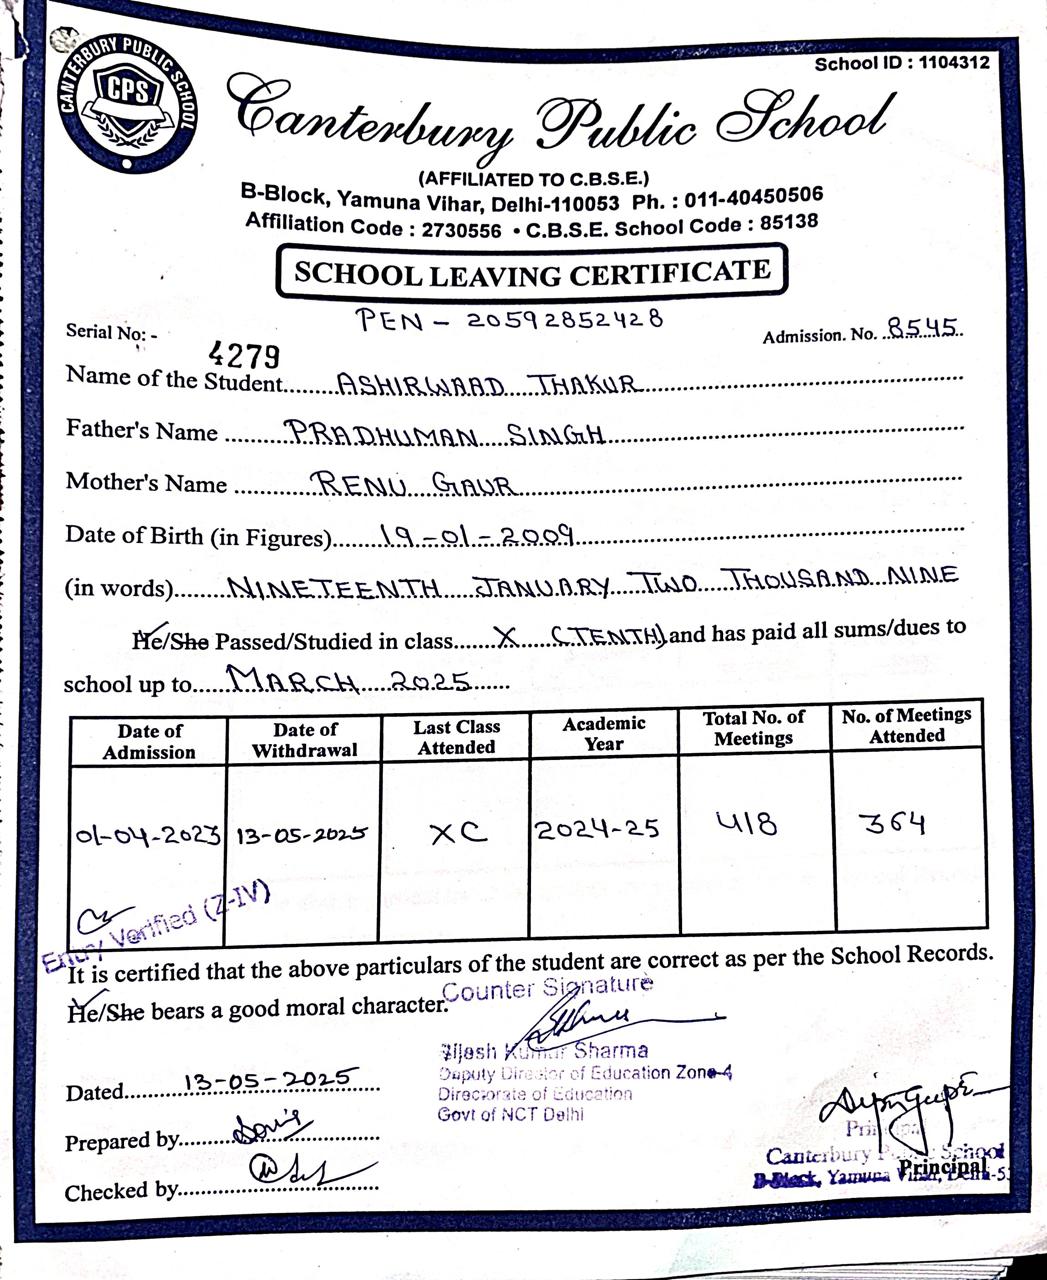 School ID : 1104312
CANTERBURY PUBLIC SCHOOL
CPS
Canterbury Public School
(AFFILIATED TO C.B.S.E.)
B-Block, Yamuna Vihar, Delhi-110053 Ph. : 011-40450506
Affiliation Code : 2730556 • C.B.S.E. School Code : 85138
SCHOOL LEAVING CERTIFICATE
PEN - 20592852428
Serial No:- 4279
Admission. No. 8545
Name of the Student ASHIRWAAD THAKUR
Father's Name PRADHUMAN SINGH
Mother's Name RENU GAUR
Date of Birth (in Figures) 19-01-2009
(in words) NINETEENTH JANUARY TWO THOUSAND NINE
He/She Passed/Studied in class X (TENTH) and has paid all sums/dues to
school up to MARCH 2025
Date of Admission Date of Withdrawal Last Class Attended Academic Year Total No. of Meetings No. of Meetings Attended
01-04-2023 13-05-2025 XC 2024-25 418 364
Entry Verified (Z-IV)
It is certified that the above particulars of the student are correct as per the School Records.
He/She bears a good moral character.
Counter Signature
Kumar Sharma
Deputy Director of Education Zone-4
Directorate of Education
Govt of NCT Delhi
Dated 13-05-2025
Prepared by
Checked by
Principal
Canterbury Public School
Principal
B-Block, Yamuna Vihar, Delhi-53